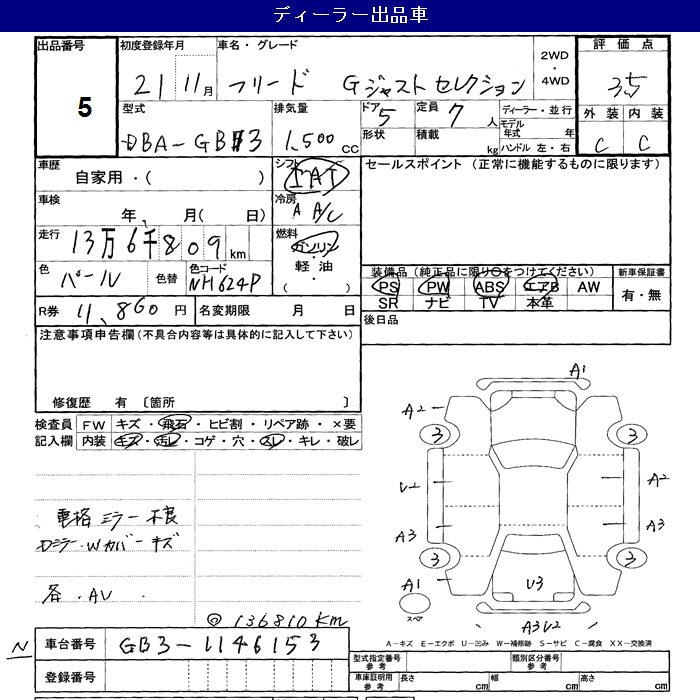 ディーラー出品車
出品番号 初度登録年月 車名・グレード 2WD・4WD 評価点
5 21 11月 フリード Gジャストセレクション 3.5
型式 排気量 ドア 定員 ディーラー・並行 外装 内装
DBA-GB3 1,500cc 5 7人 モデル年式 年 C C
形状 積載 kg ハンドル 左・右
車歴 シフト セールスポイント (正常に機能するものに限ります)
自家用・( ) IAT
車検 冷房
年、 月( 日) A A/C
走行 燃料
13万6千809km ガソリン・軽油・( )
色 色替 色コード 装備品 (純正品に限り○をつけてください) 新車保証書
パール NH624P PS PW ABS エアB AW 有・無
SR ナビ TV 本革
R券 11,860円 名変期限 月 日 後日品
注意事項申告欄 (不具合内容等は具体的に記入して下さい)
修復歴 有 〔箇所 〕
検査員記入欄 FW キズ・飛石・ヒビ割・リペア跡・×要
内装 キズ・汚レ・コゲ・穴・スレ・キレ・破レ
A1
A2
3 3
U2 A2
A3 A3
3 3
A1 U3
スペア
A3U2
電格ミラー不良
Dミラー・Wカバーキズ
各・AU.
◎ 136810km
A－キズ E－エクボ U－凹み W－補修跡 S－サビ C－腐食 XX－交換済
N 車台番号 GB3-1146153
登録番号
型式指定番号 参考 類別区分番号 参考
車庫証明用 参考 長さ cm 幅 cm 高さ cm